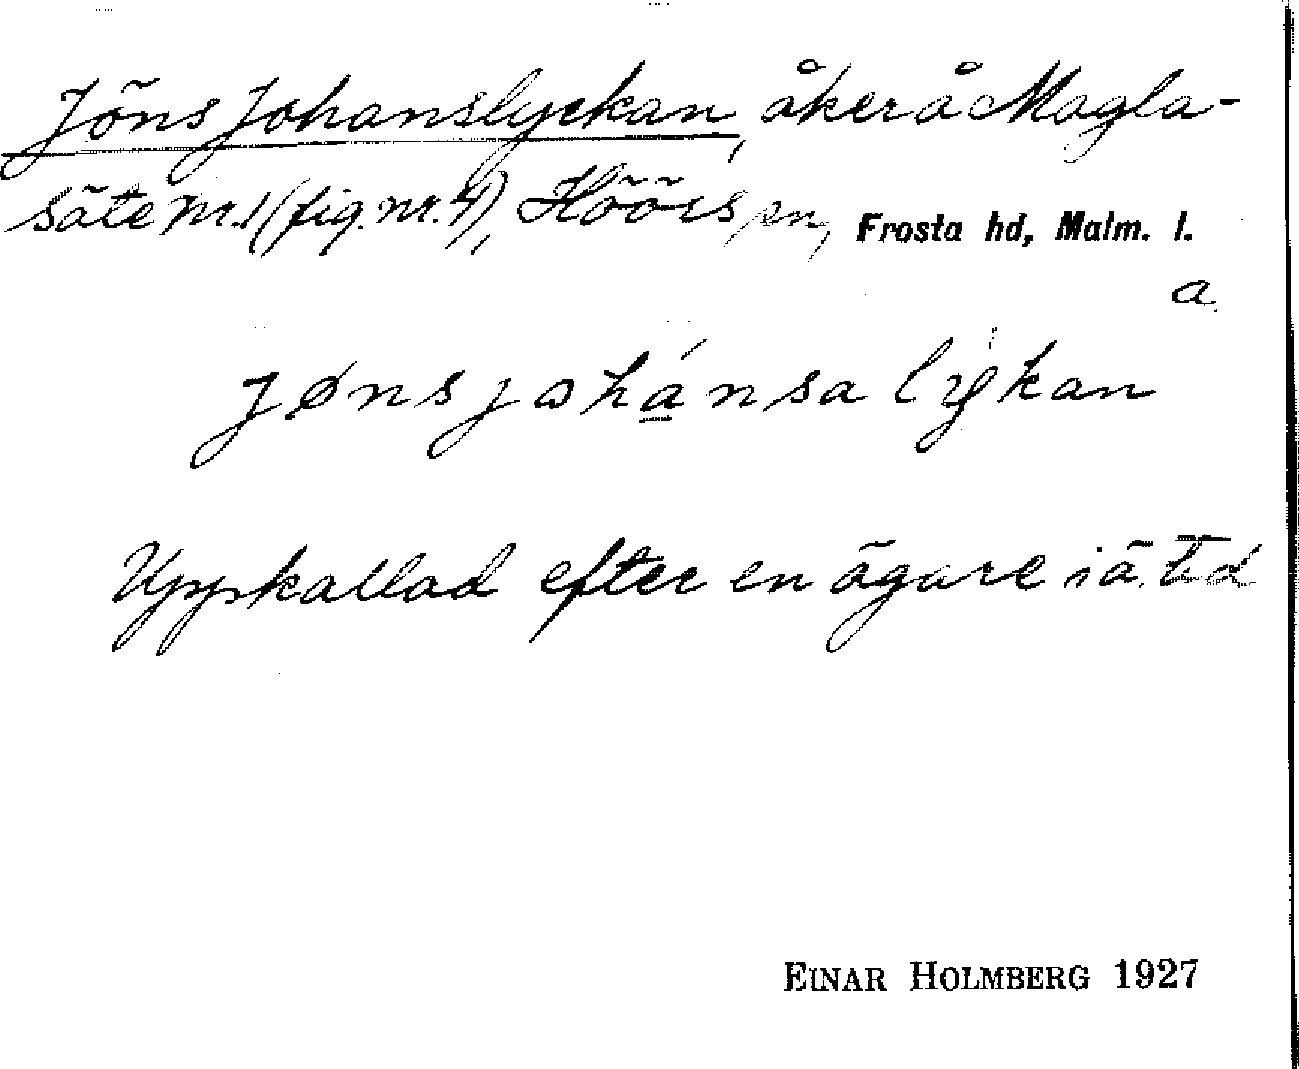 Jöns Johanslyckan, åker å Magla-
säte nr. 1 (fig. nr. 4), Höörs sn, Frosta hd, Malm. l.
a.
jøns johánsa lykan
Uppkallad efter en ägare i ä. tid
EINAR HOLMBERG 1927